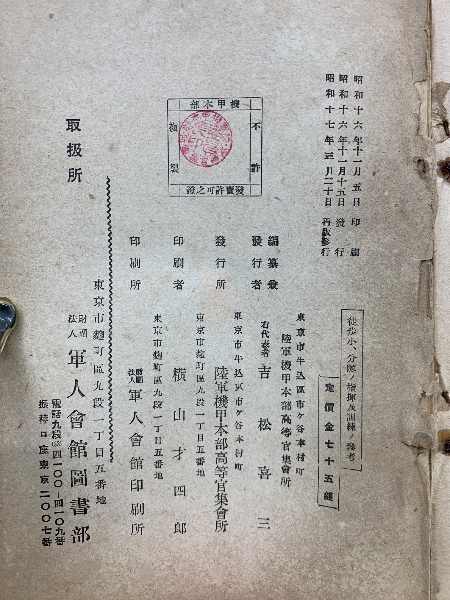 昭和十六年十一月五日印刷
昭和十六年十一月十五日發行
昭和十七年三月二十日再版發行
徒歩小、分隊ノ指揮及訓練ノ參考
定價金七十五錢
機甲本部
不許
複製
發賣許可之證
編纂兼
發行者
東京市牛込區市ケ谷本村町
陸軍機甲本部高等官集會所
右代表者 吉松喜三
發行所
東京市牛込區市ケ谷本村町
陸軍機甲本部高等官集會所
印刷者
東京市麹町區九段一丁目五番地
横山才四郎
印刷所
東京市麹町區九段一丁目五番地
財團法人 軍人會館印刷所
取扱所
東京市麹町區九段一丁目五番地
財團法人 軍人會館圖書部
電話九段四一〇〇—四一〇九番
振替口座東京二〇〇七番